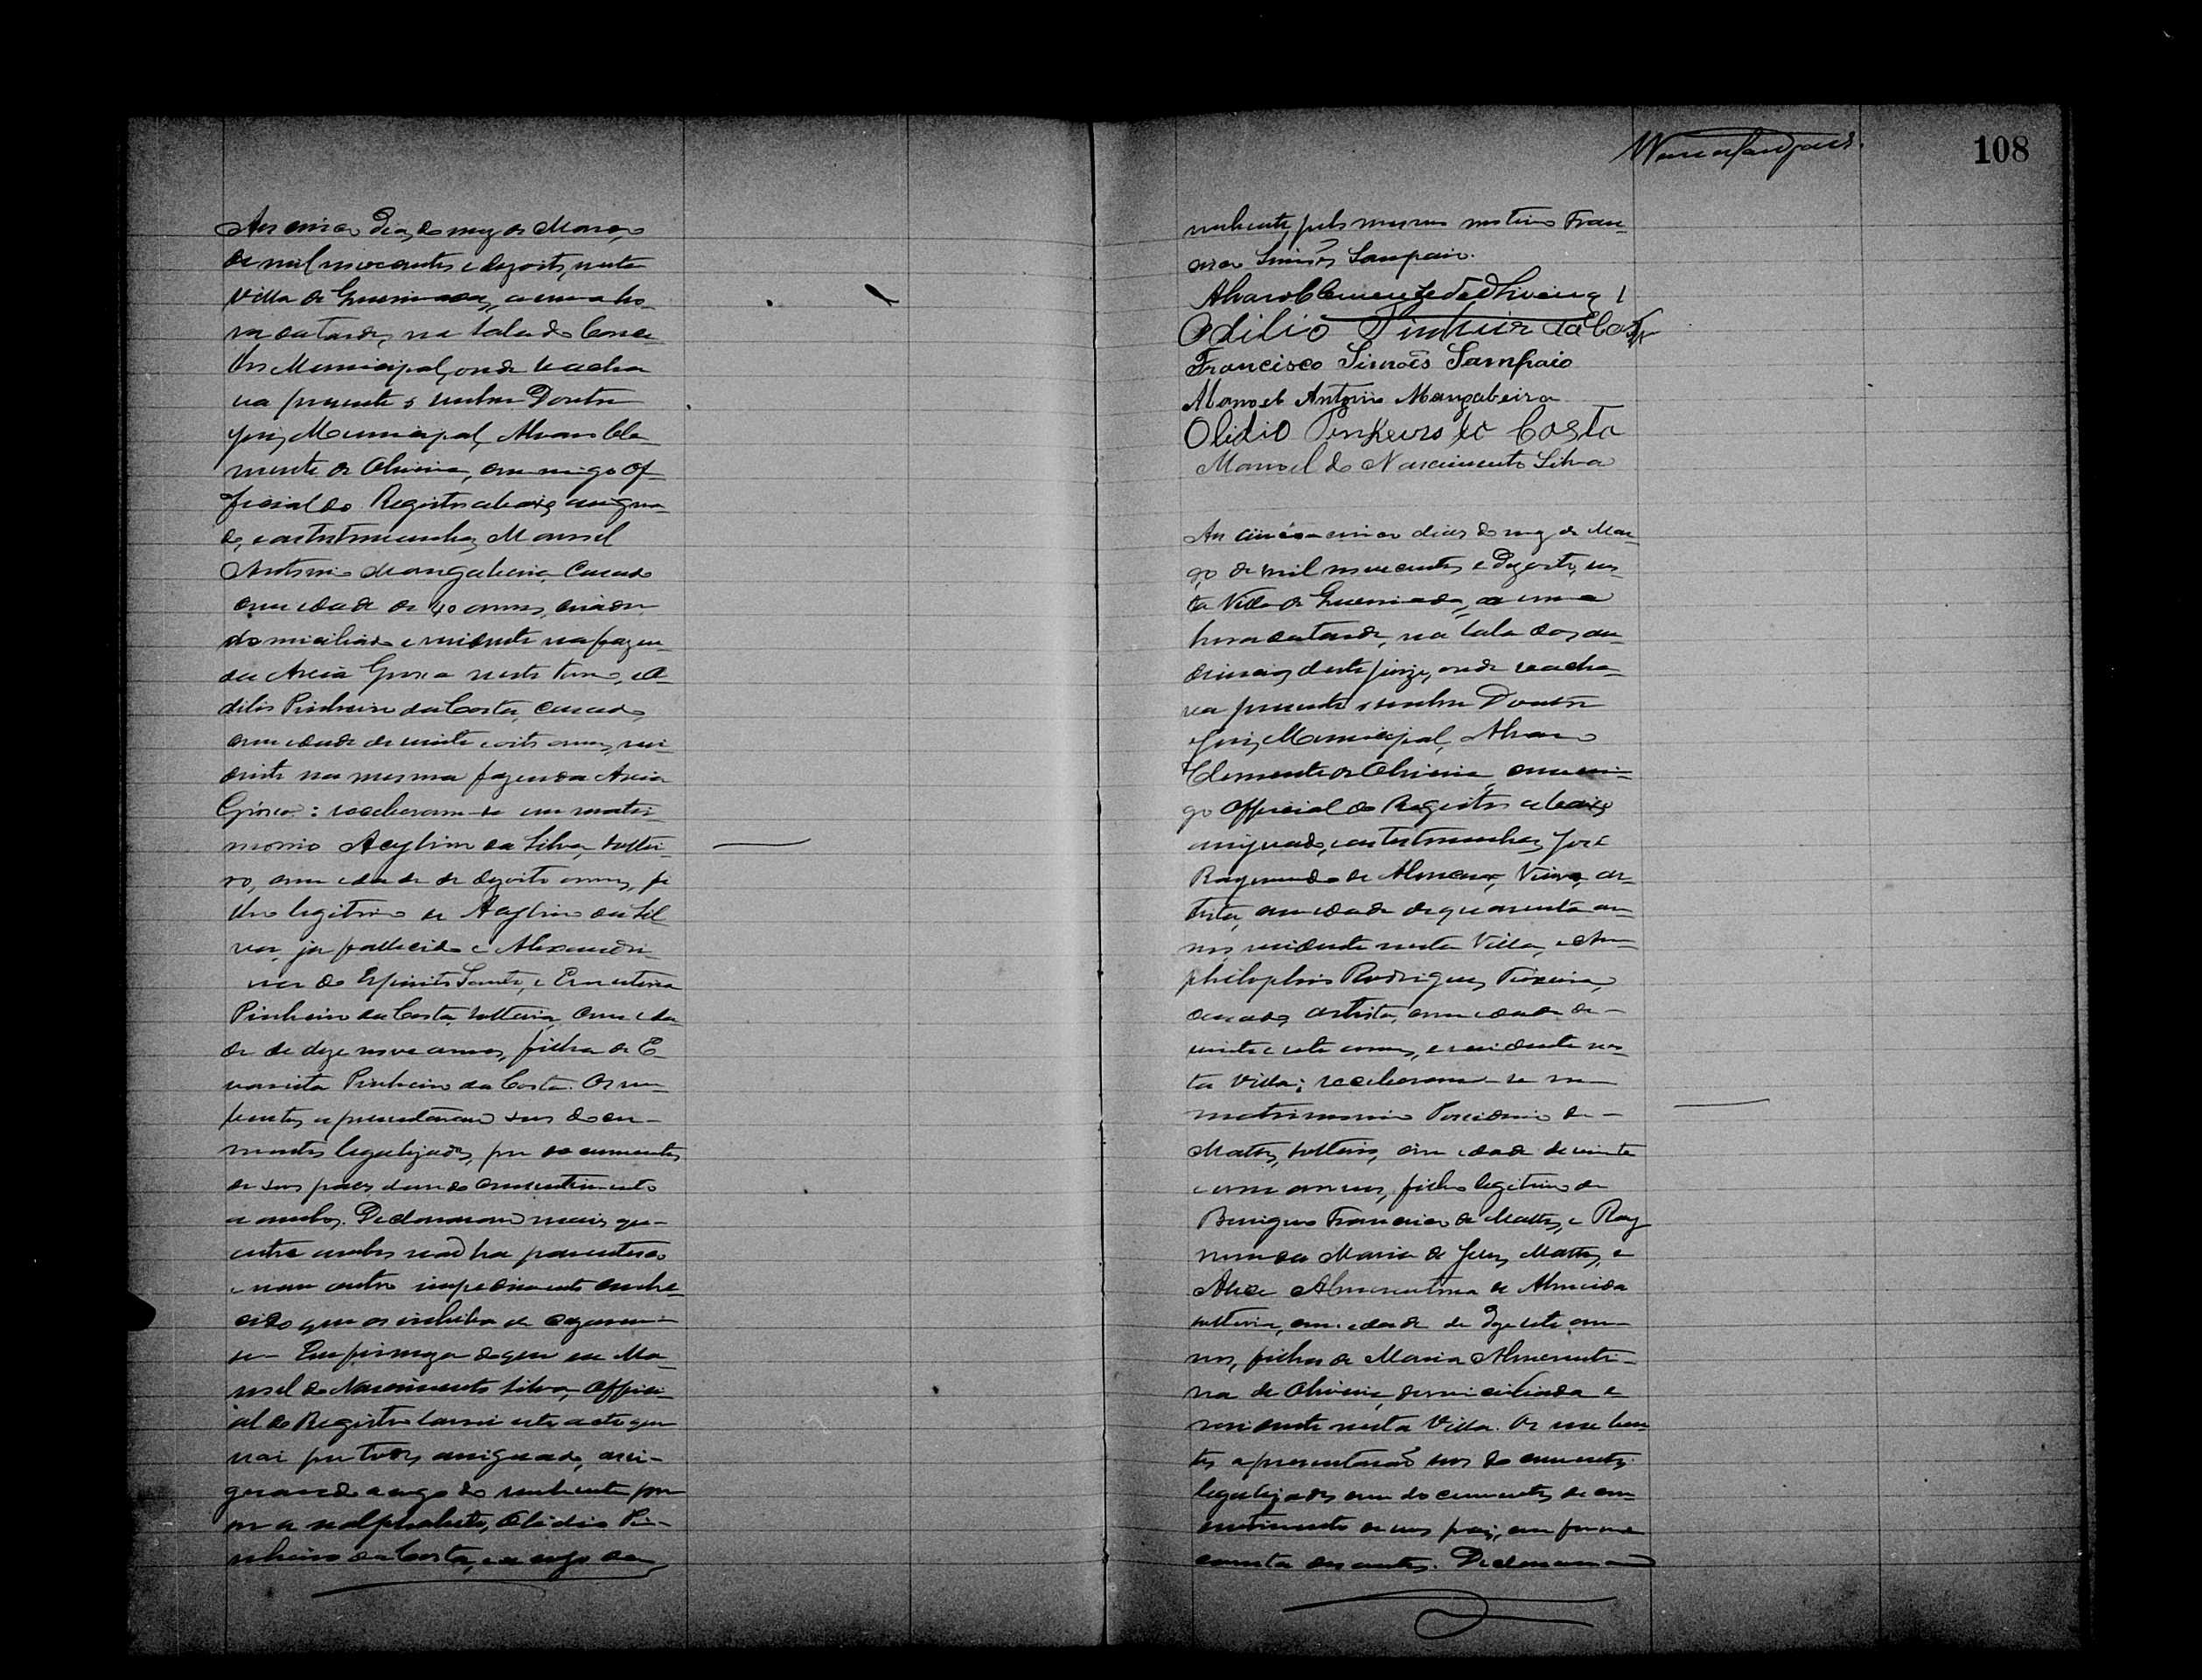 Aos cinco dias do mez de Março
de mil novecentos e dezoito, nesta
Villa de Queimadas, a uma ho-
ra da tarde, na sala do Conse-
lho Municipal, onde se acha
va presente o senhor Doutor
Juiz Municipal, Alvaro Cle-
mente de Oliveira, commigo Of-
ficial do Registro abaixo assigna-
do, e as testemunhas Manoel
Antonio Mangabeira, casado
com idade de 40 annos, criador
domiciliado e residente na fazen-
da Areia Grossa neste termo, e O-
dilio Pinheiro da Costa, casado,
com idade de vinte e oito annos, resi-
dente na mesma fazenda Areia
Grossa: receberam-se em matri-
monio Acylino da Silva, soltei-
ro, com idade de dezoito annos, fi
lho legitimo de Acylino da Sil
va, ja fallecido e Alexandri-
na do Espirito Santo, e Ernestina
Pinheiro da Costa, solteira, com ida-
de de dezenove annos, filha de E-
varista Pinheiro da Costa. Os nu-
bentes apresentaram seus docu-
mentos legalizados, por documentos
de seus paes, dando consentimento
a ambos. Declararam mais que
entre ambos não ha parentesco
e nem outro impedimento conhe-
cido que os inhiba de casarem-
se. Em firmeza do que eu Ma-
noel do Nascimento Silva, Offici-
al do Registro lavrei este acto que
vai por todos assignado, assi-
gnando a rogo do nubente por
ser analphabeto, Olidio Pi-
nheiro da Costa, e a rogo da
108
nubente, pelo mesmo motivo Fran-
cisco Simões Sampaio.
Alvaro Clemente de Oliveira
Odilio Pinheiro da Costa
Francisco Simões Sampaio
Manoel Antonio Mangabeira
Olidio Pinheiro da Costa
Manoel do Nascimento Silva
Aos cinco dias do mez de Mar-
ço de mil novecentos e dezoito, nes-
ta Villa de Queimadas, a uma
hora da tarde, na sala das au-
diencias deste juizo, onde se acha-
va presente o senhor Doutor
Juiz Municipal, Alvaro
Clemente de Oliveira commi-
go Official do Registro abaixo
assignado, e as testemunhas José
Raymundo de, Viuvo, ar-
tista, com idade de quarenta an-
nos, residente nesta Villa, e Am-
philophio Rodrigues Teixeira,
casado, artista, com idade de
vinte e sete annos, e residente nes-
ta Villa; receberam-se em
matrimonio Possidonio de
Mattos, solteiro, com idade de vinte
e um annos, filho legitimo de
Benigno Francisco de Mattos, e Ray
munda Maria de Jesus Mattos, e
Alice Almerentina de Almeida
solteira, com idade de dezesete an-
nos, filha de Maria Almerenti-
na de Oliveira, domiciliada e
residente nesta Villa. Os nuben-
tes apresentarão seus documentos
legalizados com documentos de con-
sentimento de seus pais, conforme
consta dos autos. Declararam